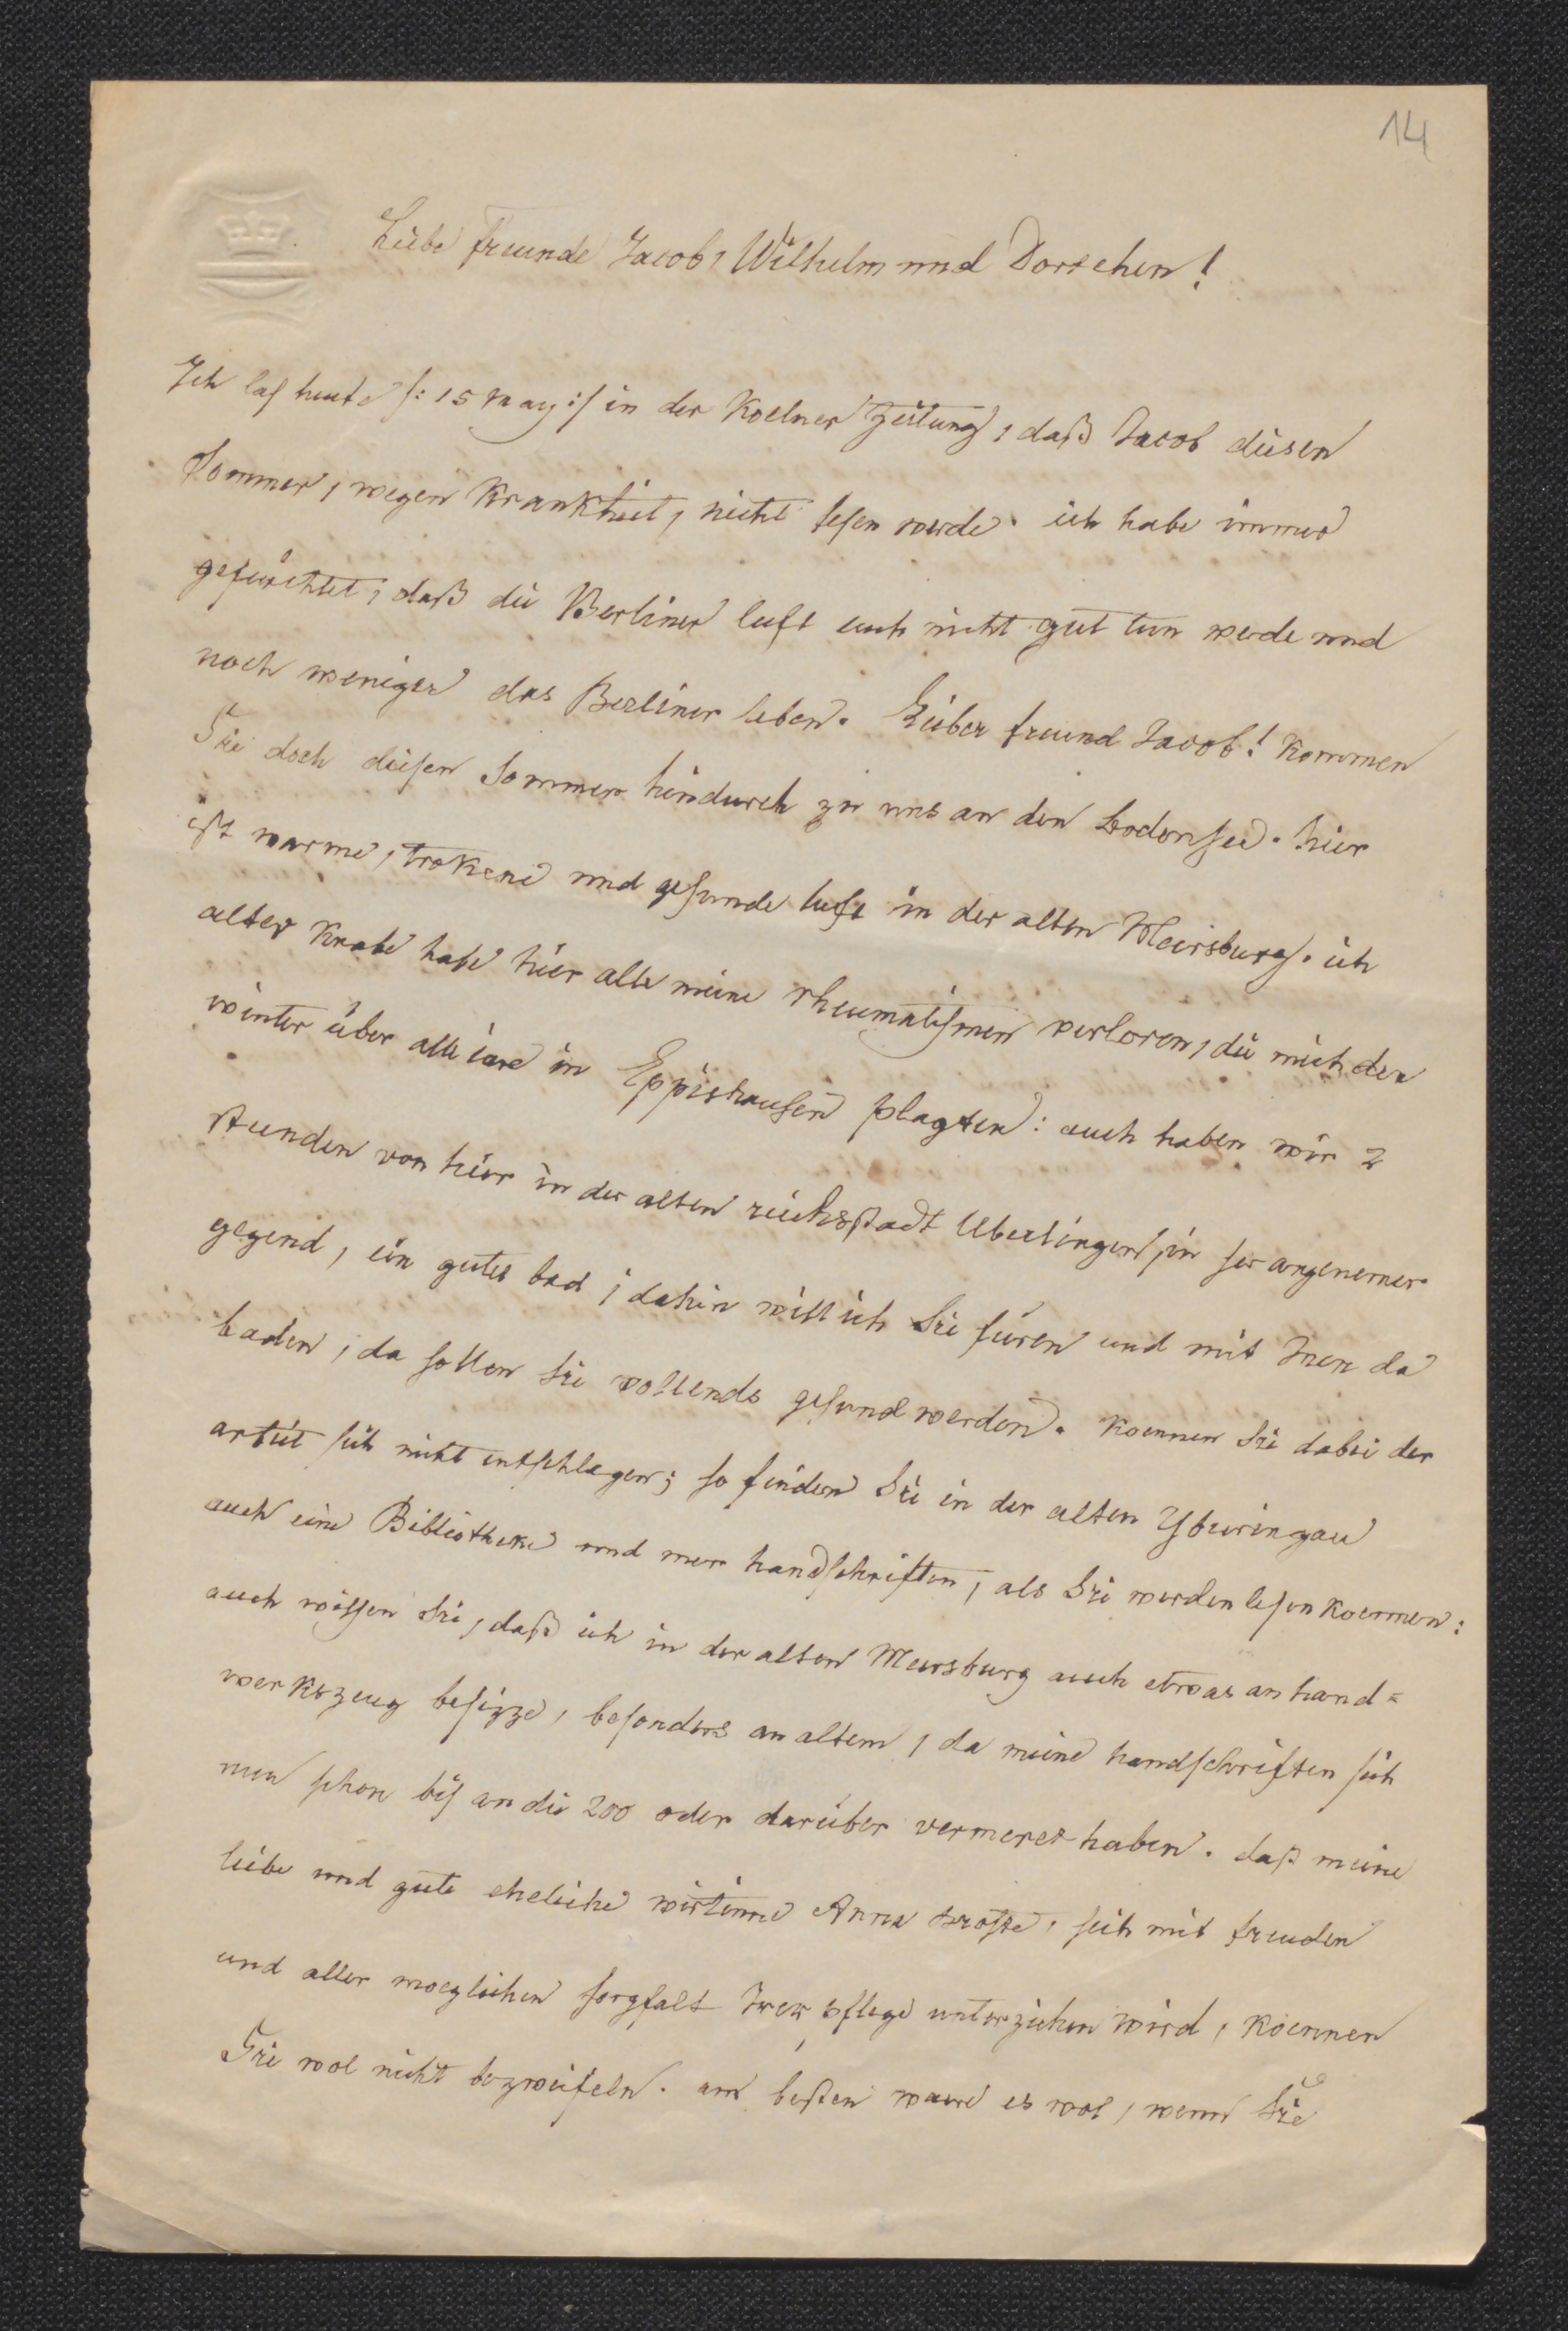 14
Liebe freunde Jacob, Wilhelm und Dortchen!
Ich laſ heute /: 15 May :/ in der Koelner Zeitung, daß Jacob diesen
Sommer, wegen Krankheit, nicht leſen werde. ich habe immer
gefürchtet, daß die Berliner luft euch nicht gut tun werde und
noch weniger das Berliner leben. Lieber freund Jacob! Kommen
Sie doch dieſen Sommer hindurch zu uns an den Bodenſee. hier
iſt warme, trokene und geſunde luft in der alten Meirsburg. ich
alter Knabe habe hier alle meine rheumatiſmen verloren, die mich den
winter über alle iare in Eppishauſen plagten: auch haben wir 2
stunden von hier in der alten reichsſtadt Uberlingen, in ſer angenemer
gegend, ein gutes bad; dahin will ich Sie füren und mit Inen da
baden, da ſollen Sie vollends geſund werden. Koennen Sie dabei der
arbeit ſich nicht entſchlagen; ſo finden Sie in der alten Yburingau
auch eine Bibliotheke und mer handſchriften, als Sie werden leſen Koennen:
auch wiſſen Sie, daß ich in der alten Meersburg auch etwas an hand=
werkszeug beſizze, beſonders an altem, da meine handſchriften ſich
nun ſchon biſ an die 200 oder darüber vermeret haben. daß meine
liebe und gute eheliche wirtinne Anna Droſte, ſich mit freuden
und aller moeglichen ſorgfalt Irer pflege unterziehen wird, Koennen
Sie wol nicht bezweifeln. am beſten waere es wol, wenn Sie